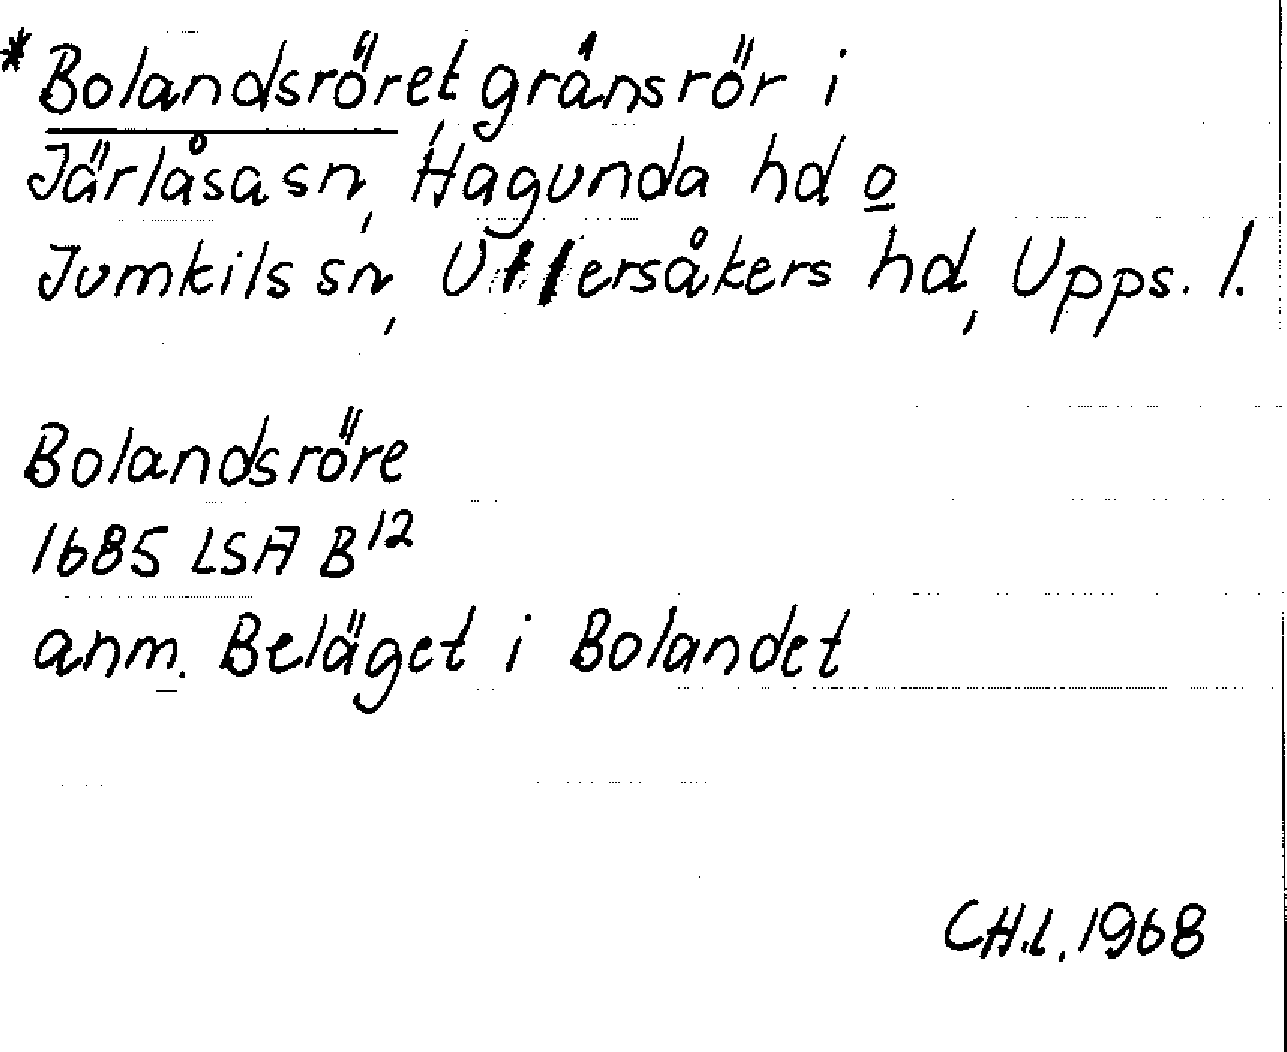 * Bolandsröret, gränsrör i
Järlåsa sn, Hagunda hd o
Jumkils sn, Ullersåkers hd, Upps. l.
Bolandsröre
1685 LSA B12
anm. Beläget i Bolandet
CH.L. 1968